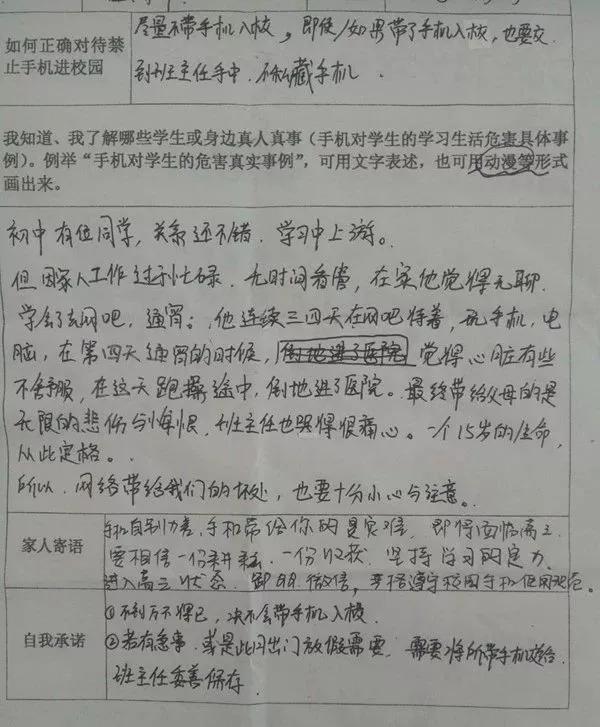 如何正确对待禁止手机进校园
尽量不带手机入校，即使/如果带了手机入校，也要交
到班主任手中，不私藏手机.
我知道、我了解哪些学生或身边真人真事（手机对学生的学习生活危害具体事
例）。例举“手机对学生的危害真实事例”，可用文字表述，也可用动漫等形式
画出来。
初中有位同学，关系还不错.学习中上游。
但因家人工作过于忙碌.无时间看管，在家他觉得无聊.
学会了去网吧，通宵；他连续三四天在网吧待着，玩手机，电
脑，在第四天通宵的时候，倒地进了医院 觉得心脏有些
不舒服，在这天跑操途中，倒地进了医院。最终带给父母的是
无限的悲伤与悔恨.班主任也哭得很痛心。一个15岁的生命，
从此定格。
所以.网络带给我们的坏处，也要十分小心与注意。
家人寄语
手机自制力差，手机带给你的是灾难.即将面临高三.
要相信一份耕耘.一份收获.坚持学习的定力.
进入高三状态.卸QQ.微信，严格遵守校园手机使用规范。
自我承诺
①不到万不得已，决不会带手机入校.
②若有急事.或是此月出门放假需要，需要将所带手机送给
班主任妥善保存.